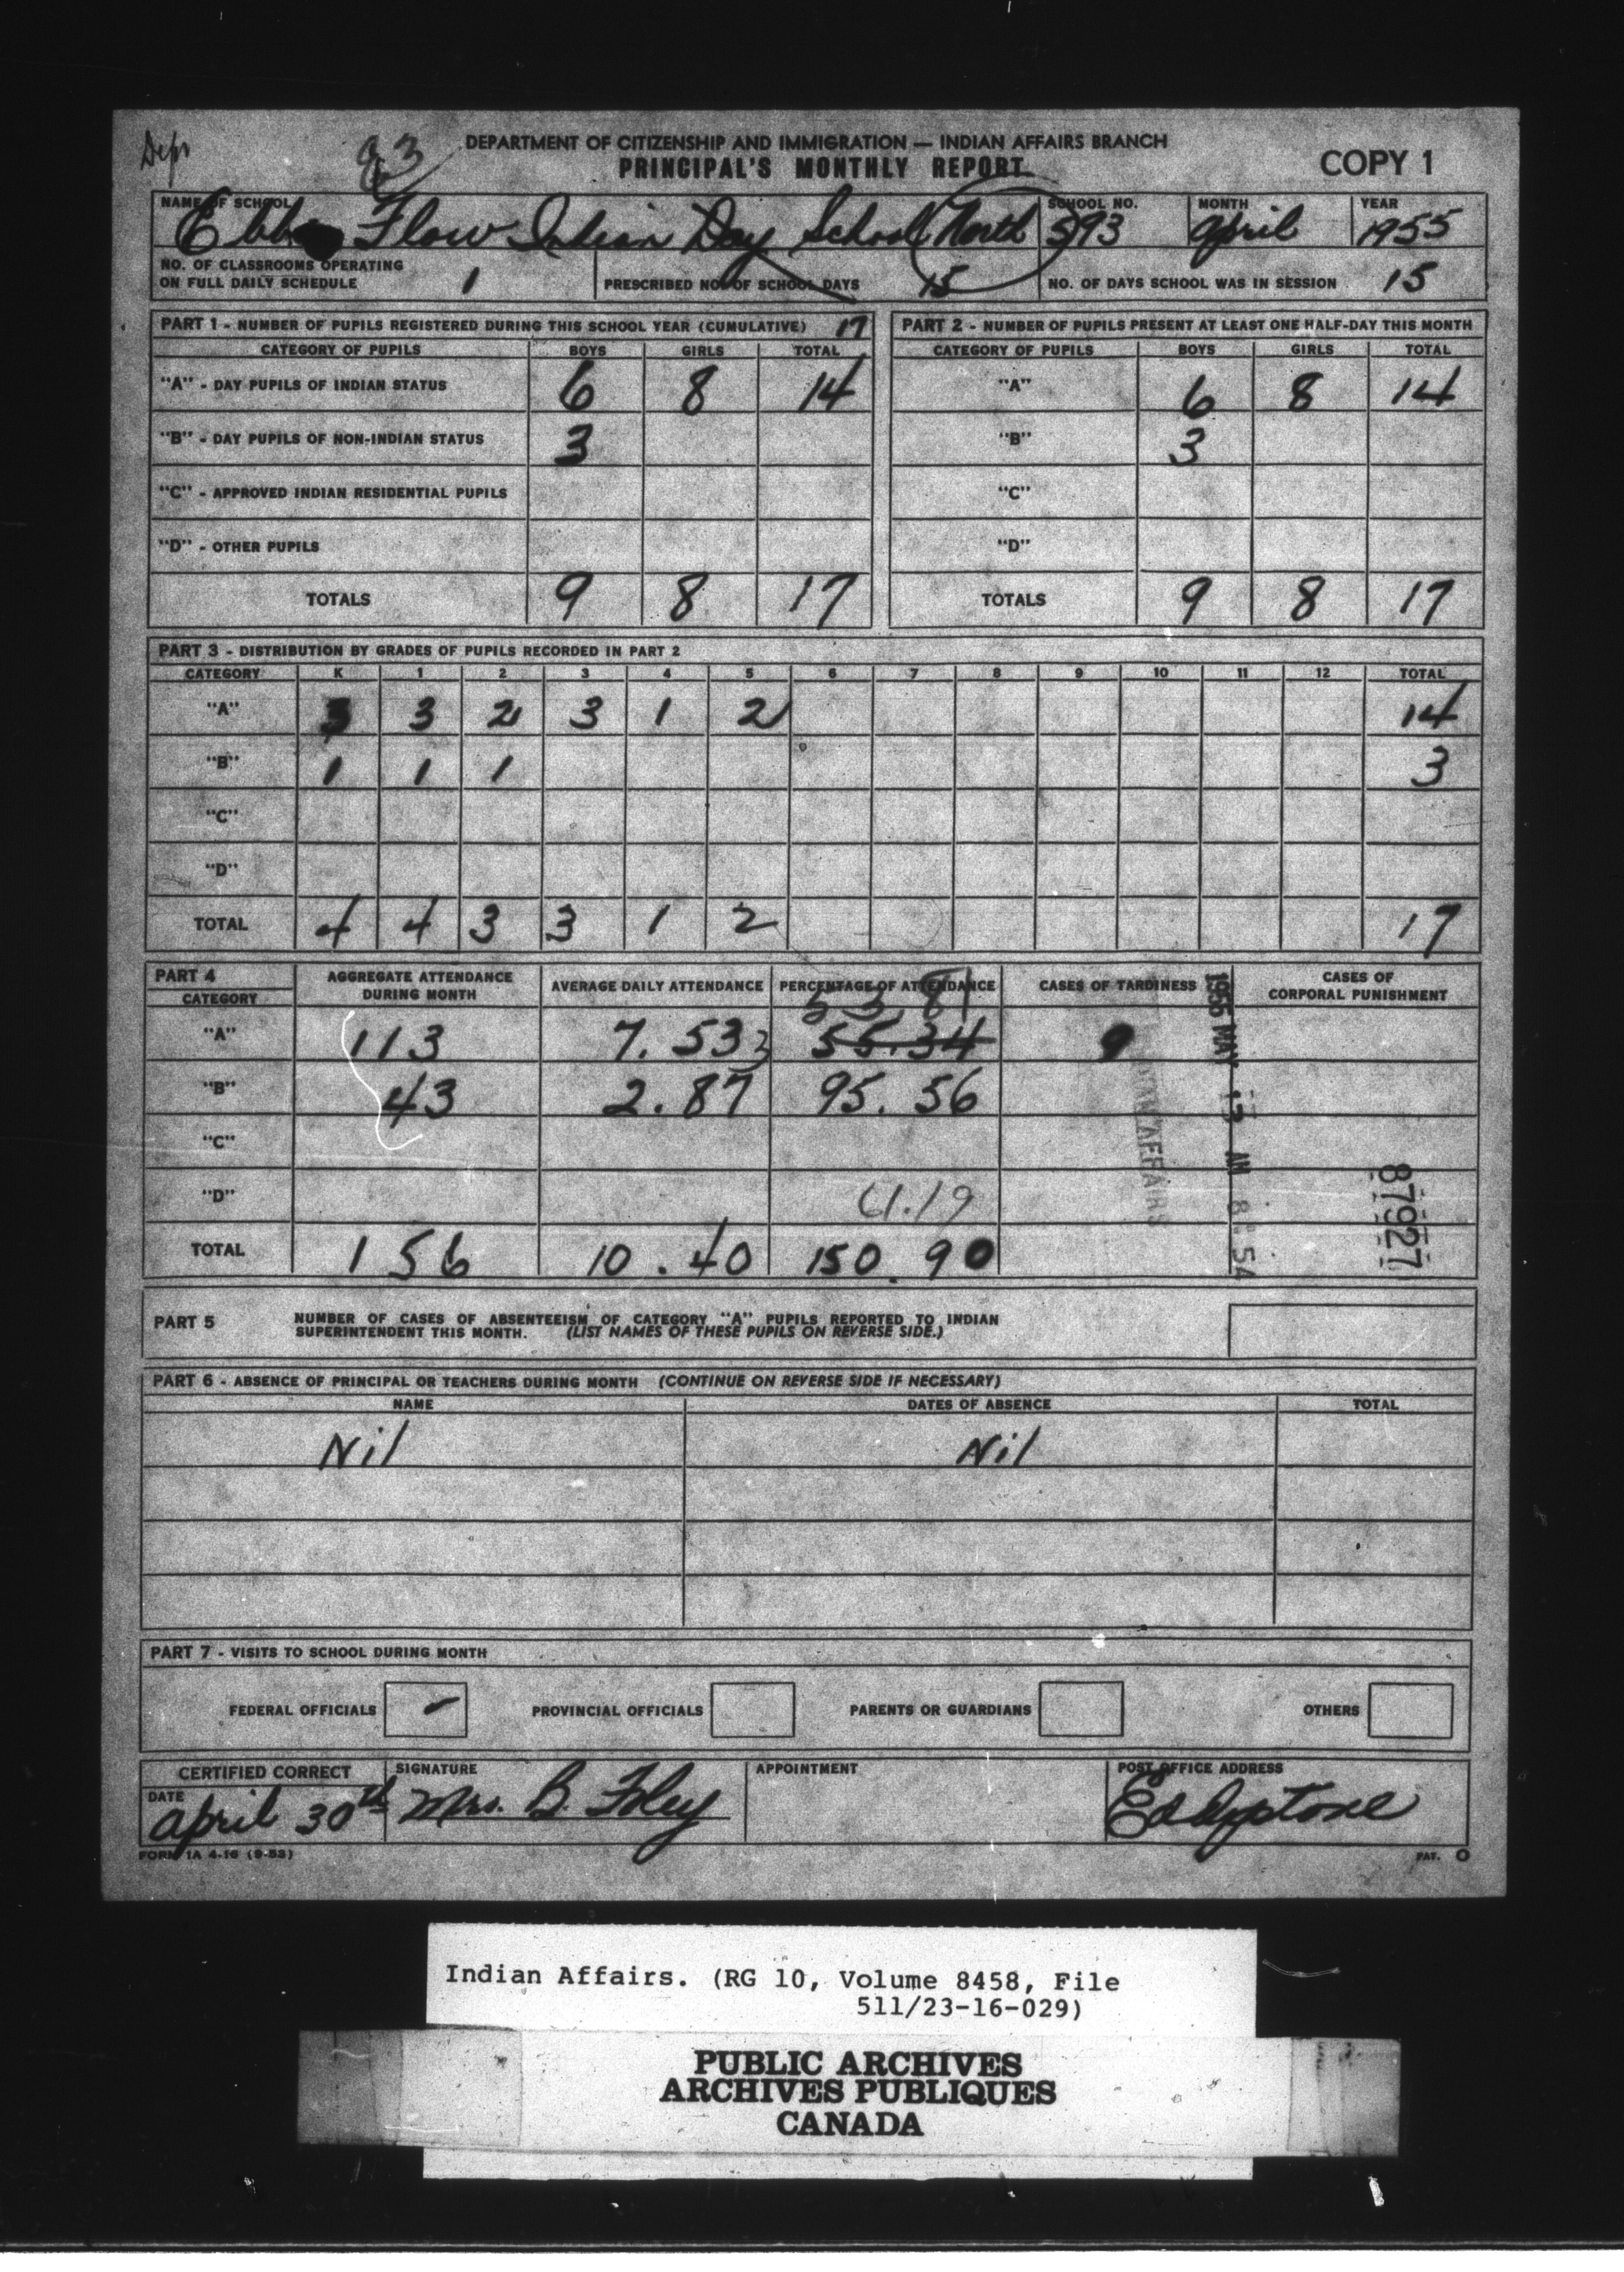 Dept 93 DEPARTMENT OF CITIZENSHIP AND IMMIGRATION — INDIAN AFFAIRS BRANCH
PRINCIPAL'S MONTHLY REPORT
COPY 1
NAME OF SCHOOL SCHOOL NO. MONTH YEAR
Ebb Flow Indian Day School (North) 593 April 1955
NO. OF CLASSROOMS OPERATING
ON FULL DAILY SCHEDULE 1 PRESCRIBED NO. OF SCHOOL DAYS 15 NO. OF DAYS SCHOOL WAS IN SESSION 15
PART 1 - NUMBER OF PUPILS REGISTERED DURING THIS SCHOOL YEAR (CUMULATIVE) 17
CATEGORY OF PUPILS BOYS GIRLS TOTAL
"A" - DAY PUPILS OF INDIAN STATUS 6 8 14
"B" - DAY PUPILS OF NON-INDIAN STATUS 3
"C" - APPROVED INDIAN RESIDENTIAL PUPILS
"D" - OTHER PUPILS
TOTALS 9 8 17
PART 2 - NUMBER OF PUPILS PRESENT AT LEAST ONE HALF-DAY THIS MONTH
CATEGORY OF PUPILS BOYS GIRLS TOTAL
"A" 6 8 14
"B" 3
"C"
"D"
TOTALS 9 8 17
PART 3 - DISTRIBUTION BY GRADES OF PUPILS RECORDED IN PART 2
CATEGORY K 1 2 3 4 5 6 7 8 9 10 11 12 TOTAL
"A" 3 3 2 3 1 2 14
"B" 1 1 1 3
"C"
"D"
TOTAL 4 4 3 3 1 2 17
PART 4
CATEGORY AGGREGATE ATTENDANCE DURING MONTH AVERAGE DAILY ATTENDANCE PERCENTAGE OF ATTENDANCE CASES OF TARDINESS CASES OF CORPORAL PUNISHMENT
53.81
"A" 113 7.533 55.34 9
"B" 43 2.87 95.56
"C"
"D" 61.19
TOTAL 156 10.40 150.90
1955 MAY 13 AM 8:54
INDIAN AFFAIRS
87927
PART 5 NUMBER OF CASES OF ABSENTEEISM OF CATEGORY "A" PUPILS REPORTED TO INDIAN
SUPERINTENDENT THIS MONTH. (LIST NAMES OF THESE PUPILS ON REVERSE SIDE.)
PART 6 - ABSENCE OF PRINCIPAL OR TEACHERS DURING MONTH (CONTINUE ON REVERSE SIDE IF NECESSARY)
NAME DATES OF ABSENCE TOTAL
Nil Nil
PART 7 - VISITS TO SCHOOL DURING MONTH
FEDERAL OFFICIALS - PROVINCIAL OFFICIALS PARENTS OR GUARDIANS OTHERS
CERTIFIED CORRECT SIGNATURE APPOINTMENT POST OFFICE ADDRESS
DATE
April 30th Mrs. B. Foley Eddystone
FORM 1A 4-16 (9-53) PAT. O
Indian Affairs. (RG 10, Volume 8458, File
511/23-16-029)
PUBLIC ARCHIVES
ARCHIVES PUBLIQUES
CANADA